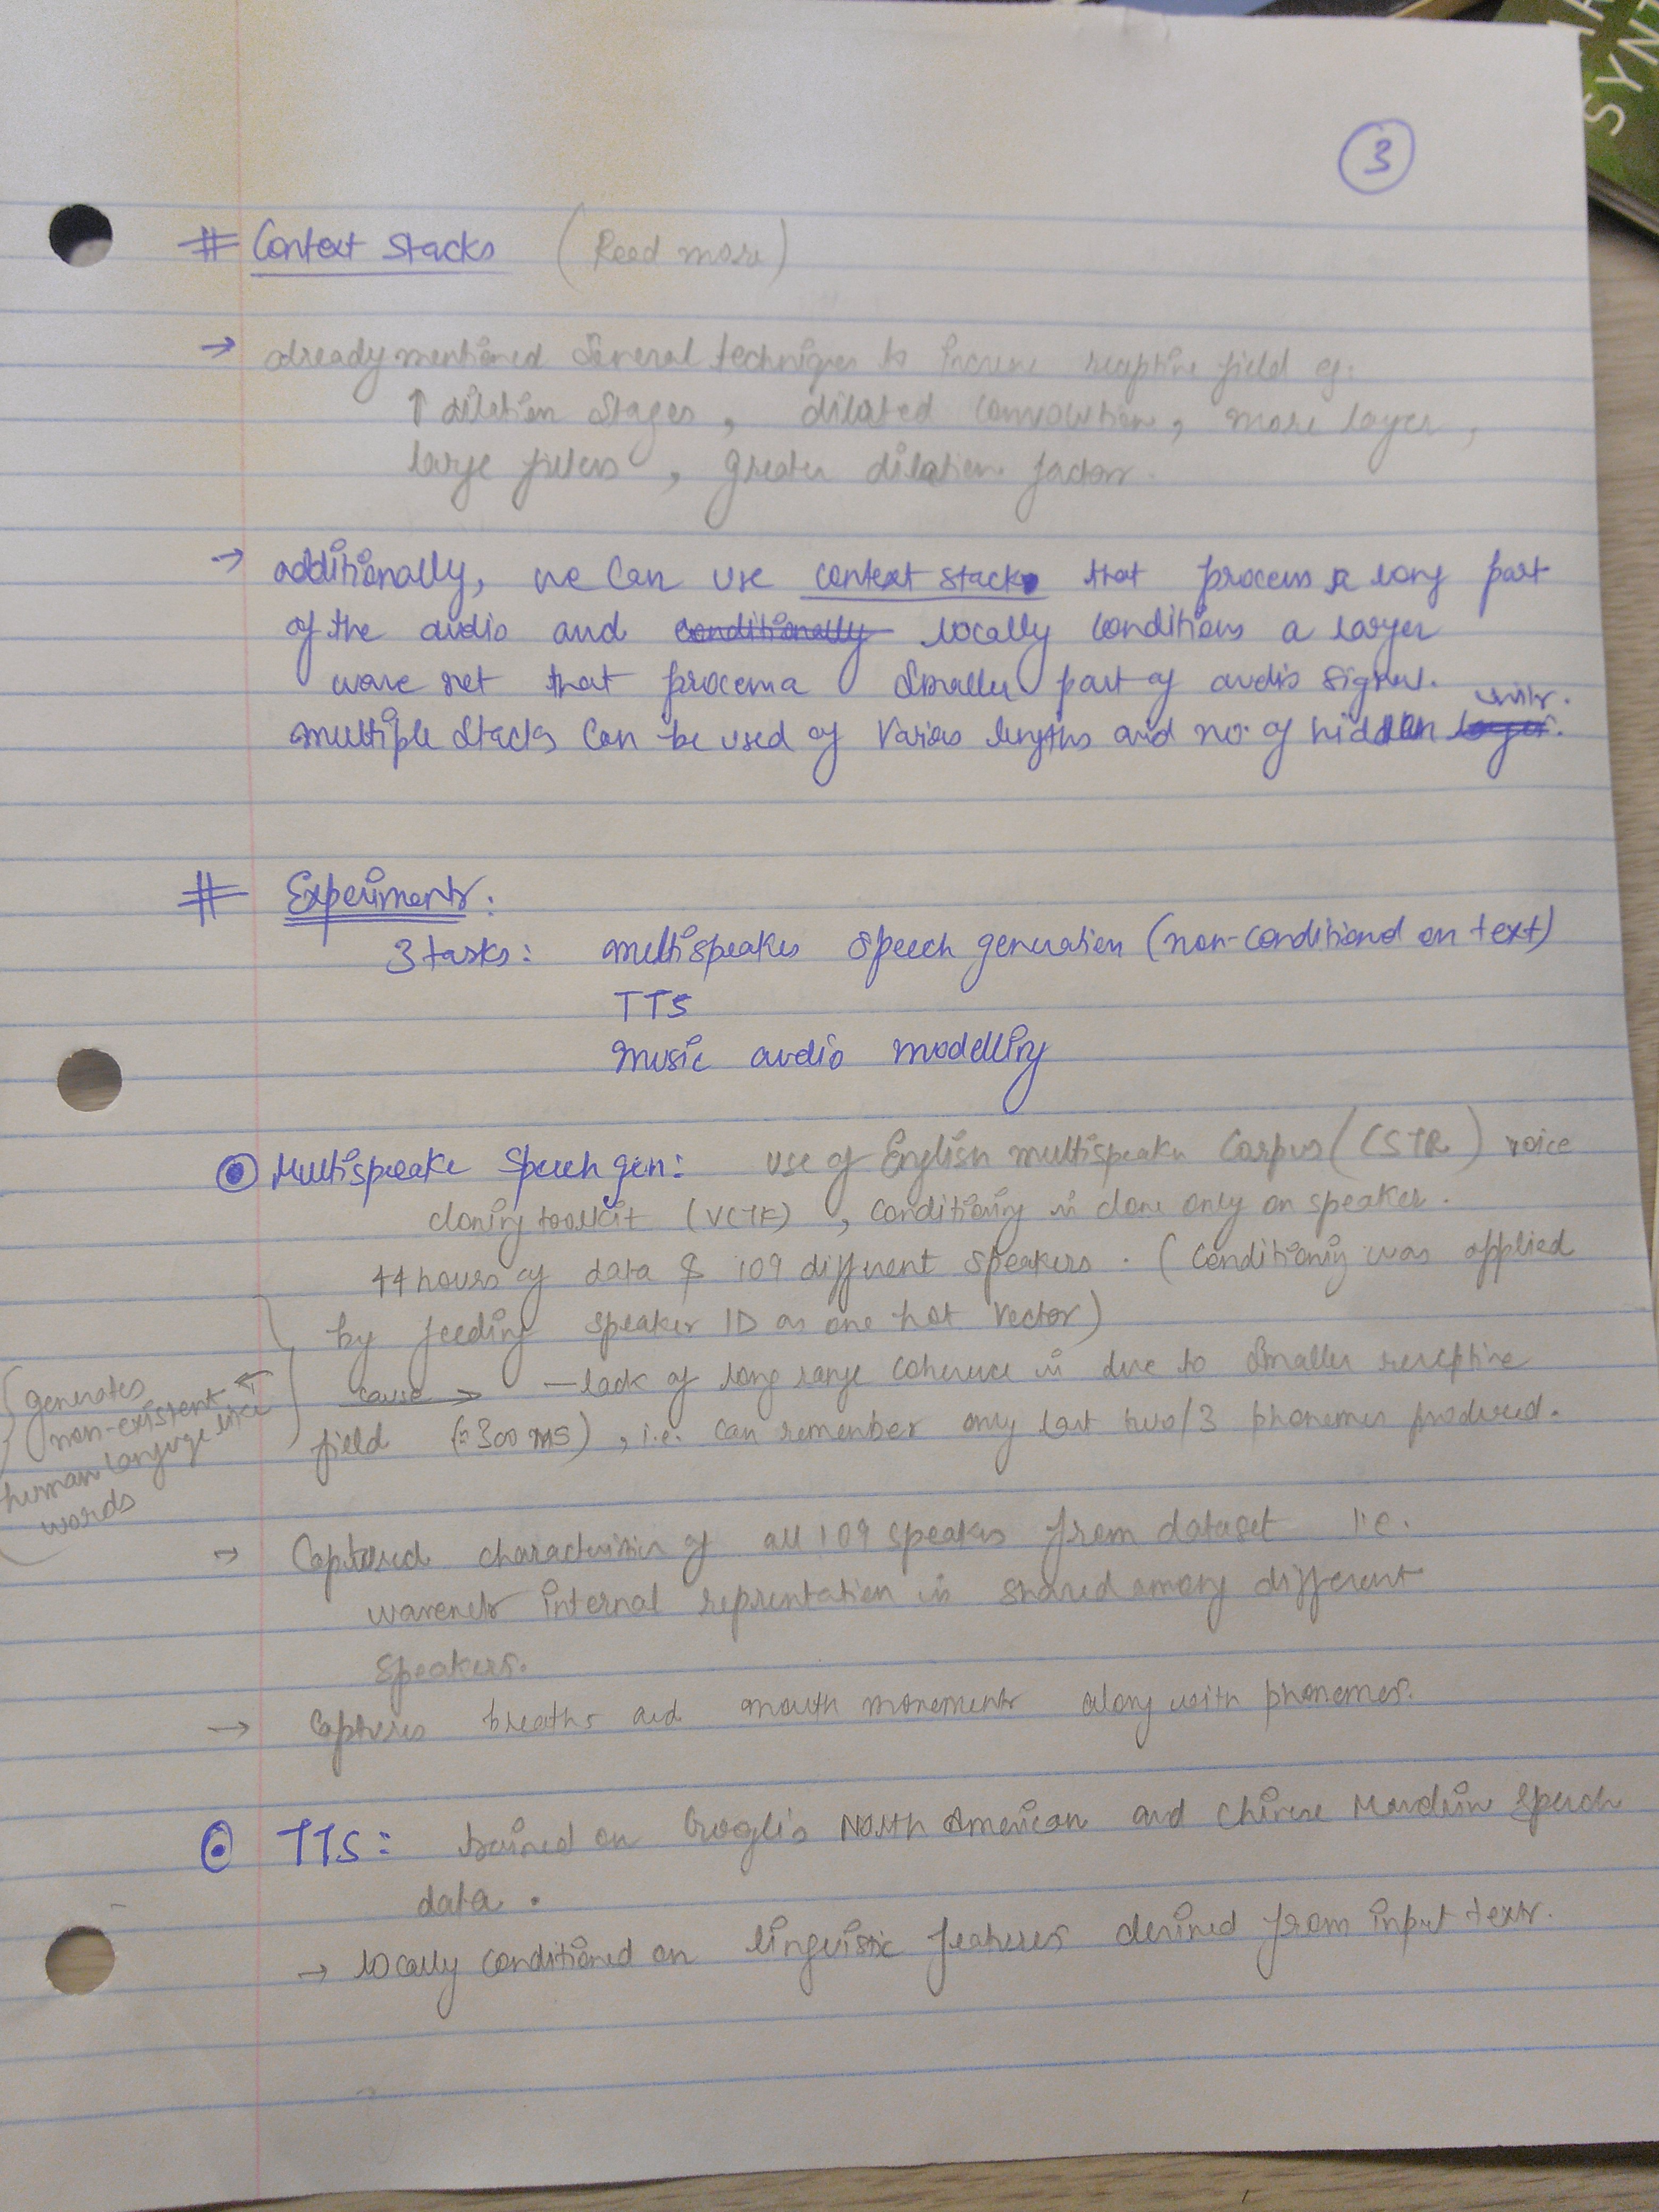 3
# Context Stacks (Read more)
→ already mentioned several techniques to increase receptive field eg:
↑ dilation stages, dilated convolution, more layer,
large filters, greater dilation factor.
→ additionally, we can use context stack that process a long part
of the audio and conditionally locally conditions a larger
wave net that process a smaller part of audio signal.
units.
multiple stacks can be used of various lengths and no. of hidden layer.
# Experiments:
3 tasks: multispeaker speech generation (non-conditioned on text)
TTS
music audio modelling
Multispeake speech gen: use of English multispeaker corpus (CSTR) voice
cloning toolkit (VCTK), conditioning is done only on speaker.
44 hours of data & 109 different speakers. (conditioning was applied
by feeding speaker ID as one hot vector)
cause → — lack of long range coherence is due to smaller receptive
field (≈300 ms), i.e. can remember only last two/3 phonemes produced.
generates ←
non-existent
human language like
words
→ Captured characteristics of all 109 speakers from dataset i.e.
wavenets internal reprentation is shared among different
speakers.
→ Captures breaths and mouth movements along with phonemes.
TTS: trained on Google's North American and Chinese Mandrin speech
data.
→ locally conditioned on linguistic features derived from input texts.
SYNT